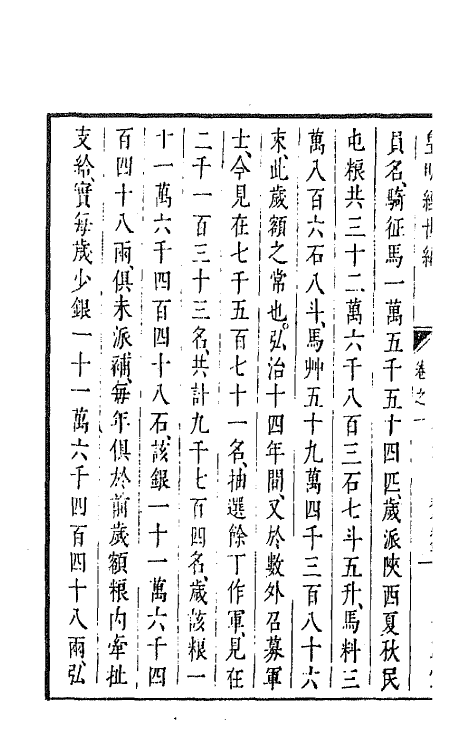 皇明經世編
卷之一
員名騎征馬一萬五千五十四匹歲派陝西夏秋民
屯粮共三十二萬六千八百三石七斗五升馬料三
萬八百六石八斗馬艸五十九萬四千三百八十六
束此歲額之常也弘治十四年間又於數外召募軍
士今見在七千五百七十一名抽選餘丁作軍見在
二千一百三十三名共計九千七百四名歲該粮一
十一萬六千四百四十八石該銀一十一萬六千四
百四十八兩俱未派補每年俱於前歲額粮內牽扯
支給實每歲少銀一十一萬六千四百四十八兩弘